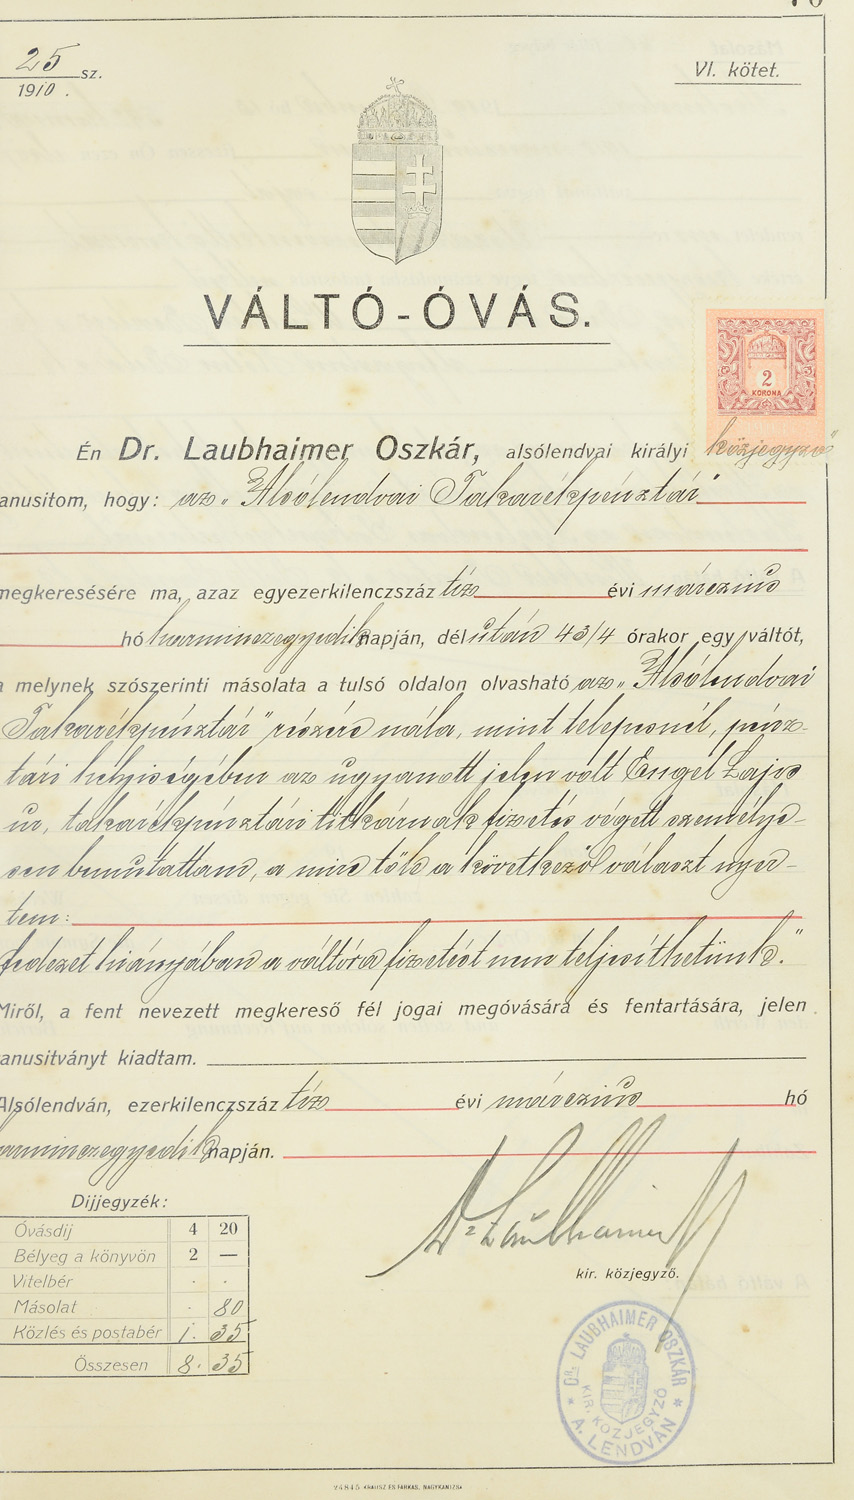 25 sz.
1910.
VI. kötet.
VÁLTÓ-ÓVÁS.
2
KORONA
Én Dr. Laubhaimer Oszkár, alsólendvai királyi közjegyző
anusitom, hogy: az „Alsólendvai Takarékpénztár"
megkeresésére ma, azaz egyezerkilenczszáz tíz évi márczius
hó harminczegyedik napján, délután 4 3/4 órakor egy váltót,
a melynek szószerinti másolata a tulsó oldalon olvasható az „Alsólendvai
Takarékpénztár" részére nála, mint telepesnél, pénz-
tári helyiségében az ugyanott jelen volt Engel Lajos
ur, takarékpénztári titkárnak fizetés végett személye-
sen bemutattam, a mire tőle a következő választ nyer-
tem:
fedezet hiányában a váltóra fizetést nem teljesíthetünk."
Miről, a fent nevezett megkereső fél jogai megóvására és fentartására, jelen
anusitványt kiadtam.
Alsólendván, ezerkilenczszáz tíz évi márczius hó
arminczegyedik napján.
Dr Laubhaimer
kir. közjegyző.
Dijjegyzék:
Óvásdij 4 20
Bélyeg a könyvön 2 —
Vitelbér . .
Másolat . 80
Közlés és postabér 1. 35
Összesen 8. 35
DR. LAUBHAIMER OSZKÁR
KIR. KÖZJEGYZŐ
* A. LENDVÁN *
24845 KRAUSZ ÉS FARKAS, NAGYKANIZSA